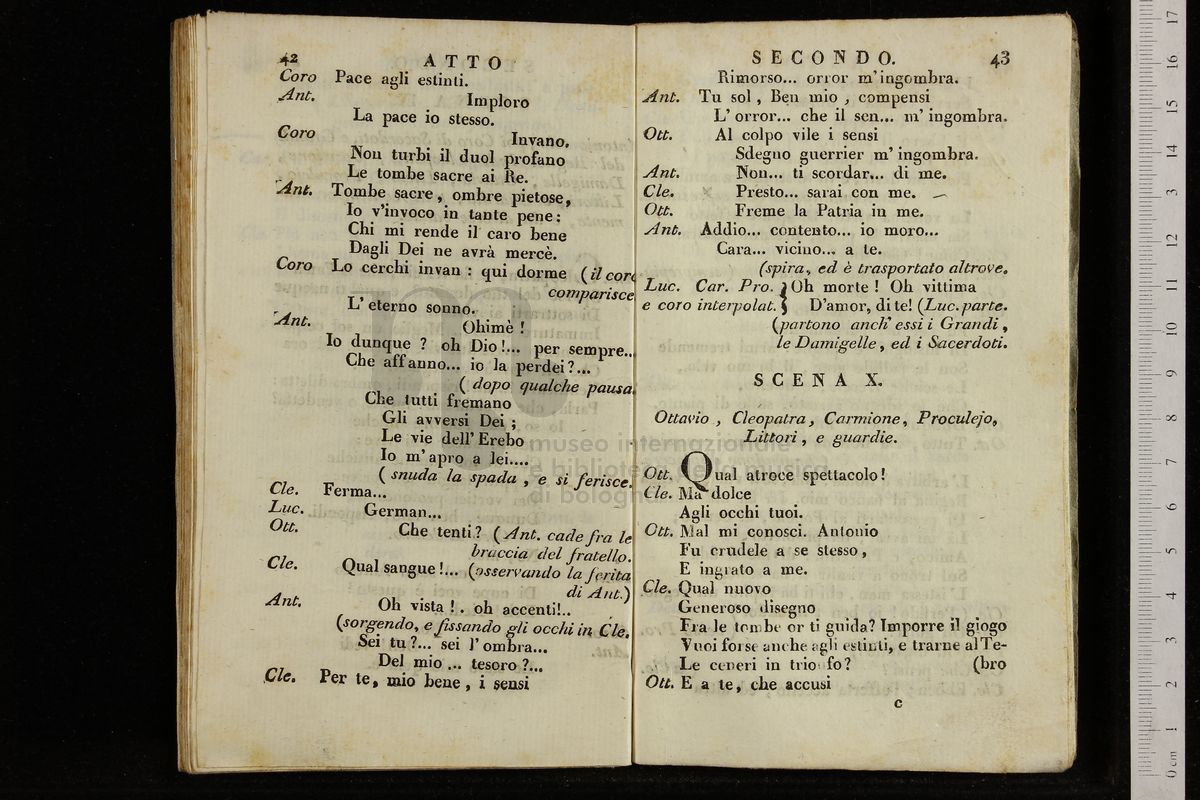 42 ATTO
Coro Pace agli estinti.
Ant. Imploro
La pace io stesso.
Coro Invano.
Non turbi il duol profano
Le tombe sacre ai Re.
Ant. Tombe sacre, ombre pietose,
Io v'invoco in tante pene:
Chi mi rende il caro bene
Dagli Dei ne avrà mercè.
Coro Lo cerchi invan : qui dorme (il coro
comparisce
L'eterno sonno.
Ant. Ohimè !
Io dunque ? oh Dio!... per sempre...
Che affanno... io la perdei?...
( dopo qualche pausa.
Che tutti fremano
Gli avversi Dei ;
Le vie dell' Erebo
Io m'apro a lei....
( snuda la spada , e si ferisce.
Cle. Ferma...
Luc. German...
Ott. Che tenti? (Ant. cade fra le
braccia del fratello.
Cle. Qual sangue!... (osservando la ferita
di Ant.)
Ant. Oh vista !. oh accenti!..
(sorgendo, e fissando gli occhi in Cle.
Sei tu?... sei l'ombra...
Del mio ... tesoro ?...
Cle. Per te, mio bene, i sensi
SECONDO. 43
Rimorso... orror m'ingombra.
Ant. Tu sol , Ben mio , compensi
L'orror... che il sen... m'ingombra.
Ott. Al colpo vile i sensi
Sdegno guerrier m'ingombra.
Ant. Non... ti scordar... di me.
Cle. Presto... sarai con me.
Ott. Freme la Patria in me.
Ant. Addio... contento... io moro...
Cara... vicino... a te.
(spira, ed è trasportato altrove.
Luc. Car. Pro. } Oh morte ! Oh vittima
e coro interpolat. } D'amor, di te! (Luc. parte.
(partono anch' essi i Grandi ,
le Damigelle, ed i Sacerdoti.
SCENA X.
Ottavio , Cleopatra, Carmione, Proculejo,
Littori , e guardie.
Ott. Qual atroce spettacolo!
Cle. Ma dolce
Agli occhi tuoi.
Ott. Mal mi conosci. Antonio
Fu crudele a se stesso,
E ingrato a me.
Cle. Qual nuovo
Generoso disegno
Fra le tombe or ti guida? Imporre il giogo
Vuoi forse anche agli estinti, e trarne al Te-
Le ceneri in trionfo? (bro
Ott. E a te, che accusi
C
museo internazionale
e biblioteca della musica
di bologna
0 cm 1 2 3 4 5 6 7 8 9 10 11 12 13 14 15 16 17